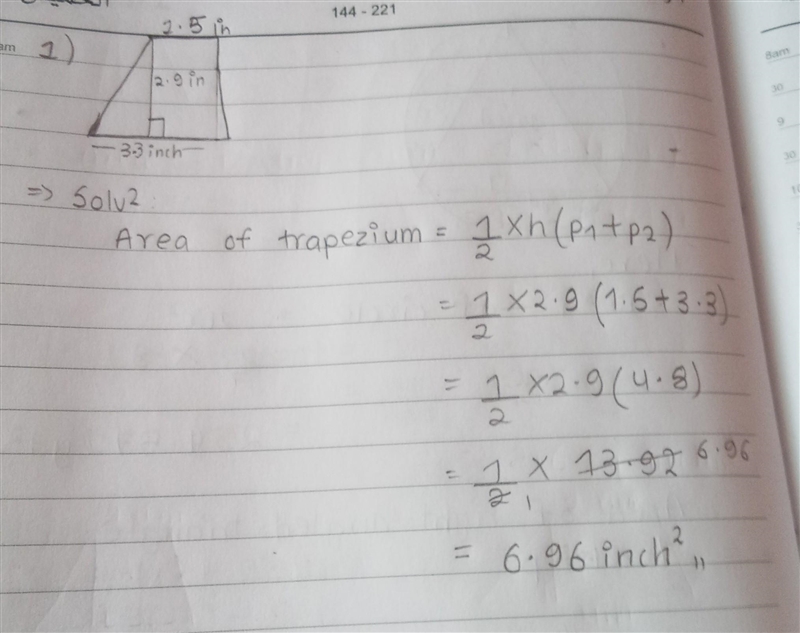 144 - 221
1.5 in
am 1)
2.9 in
3.3 inch
=> Solv²:
Area of trapezium = 1/2 × h (p1 + p2)
= 1/2 × 2.9 (1.5 + 3.3)
= 1/2 × 2.9 (4.8)
= 1/2 1 × 13.92 6.96
= 6.96 inch² ,,
8am
30
9
30